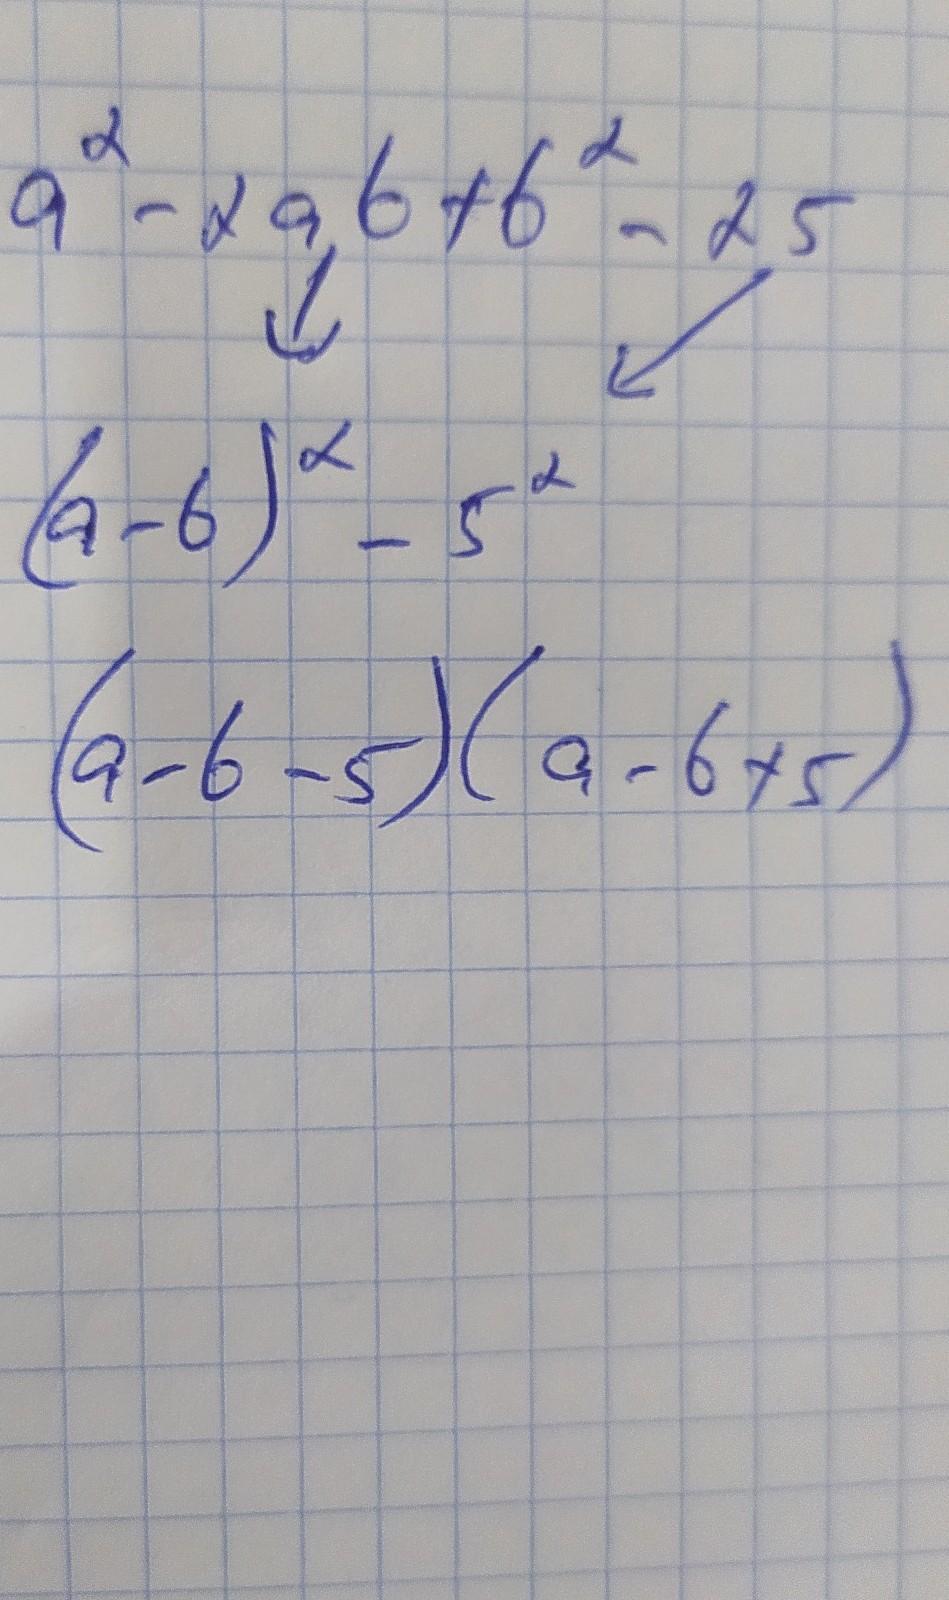 a² - 2ab + b² - 25
(a - b)² - 5²
(a - b - 5)(a - b + 5)